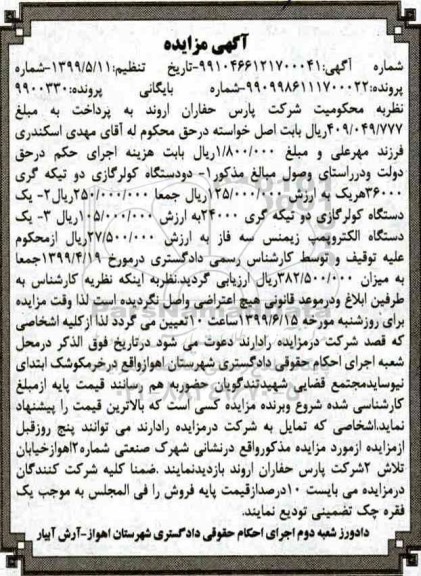 آگهی مزایده
شماره آگهی:۹۹۱۰۴۶۶۱۲۱۷۰۰۰۴۱-تاریخ تنظیم:۱۳۹۹/۵/۱۱-شماره
پرونده:۹۹۰۹۹۸۶۱۱۱۷۰۰۰۲۲-شماره بایگانی پرونده:۹۹۰۰۳۳۰
نظربه محکومیت شرکت پارس حفاران اروند به پرداخت به مبلغ
۴۰۹/۰۴۹/۷۷۷ریال بابت اصل خواسته درحق محکوم له آقای مهدی اسکندری
فرزند مهرعلی و مبلغ ۱/۸۰۰/۰۰۰ریال بابت هزینه اجرای حکم درحق
دولت ودرراستای وصول مبالغ مذکور۱- دودستگاه کولرگازی دو تیکه گری
۳۶۰۰۰هریک با ارزش ۱۲۵/۰۰۰/۰۰۰ریال جمعا ۲۵۰/۰۰۰/۰۰۰ریال۲- یک
دستگاه کولرگازی دو تیکه گری ۲۴۰۰۰به ارزش ۱۰۵/۰۰۰/۰۰۰ریال ۳- یک
دستگاه الکتروپمپ زیمنس سه فاز به ارزش ۲۷/۵۰۰/۰۰۰ریال ازمحکوم
علیه توقیف و توسط کارشناس رسمی دادگستری درمورخ ۱۳۹۹/۴/۱۹جمعا
به میزان ۳۸۲/۵۰۰/۰۰۰ریال ارزیابی گردید.نظربه اینکه نظریه کارشناس به
طرفین ابلاغ ودرموعد قانونی هیچ اعتراضی واصل نگردیده است لذا وقت مزایده
برای روزشنبه مورخه ۱۳۹۹/۶/۱۵ساعت ۱۰تعیین می گردد لذا ازکلیه اشخاصی
که قصد شرکت درمزایده رادارند دعوت می شود درتاریخ فوق الذکر درمحل
شعبه اجرای احکام حقوقی دادگستری شهرستان اهوازواقع درخرمکوشک ابتدای
نیوسایدمجتمع قضایی شهیدتندگویان حضوربه هم رسانند قیمت پایه ازمبلغ
کارشناسی شده شروع وبرنده مزایده کسی است که بالاترین قیمت را پیشنهاد
نماید.اشخاصی که تمایل به شرکت درمزایده رادارند می توانند پنج روزقبل
ازمزایده ازمورد مزایده مذکورواقع درنشانی شهرک صنعتی شماره۲اهوازخیابان
تلاش ۲شرکت پارس حفاران اروند بازدیدنمایند .ضمنا کلیه شرکت کنندگان
درمزایده می بایست ۱۰درصدازقیمت پایه فروش را فی المجلس به موجب یک
فقره چک تضمینی تودیع نمایند.
دادورز شعبه دوم اجرای احکام حقوقی دادگستری شهرستان اهواز-آرش آبیار